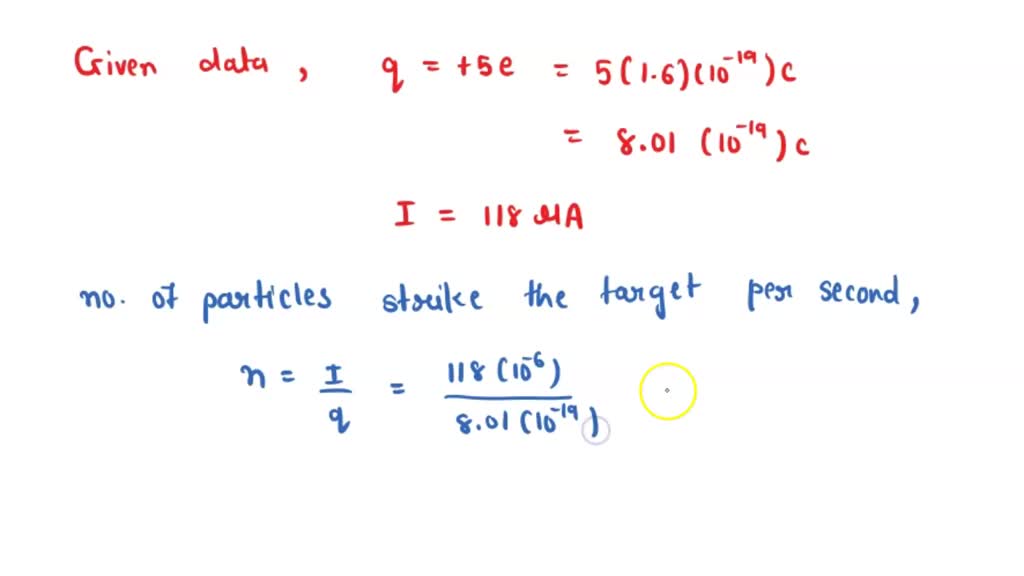 Given data , q = +5e = 5(1.6)(10⁻¹⁹)c
= 8.01 (10⁻¹⁹) c
I = 118 μA
no. of particles strike the target per second,
n = I/q = 118(10⁻⁶)/8.01(10⁻¹⁹)